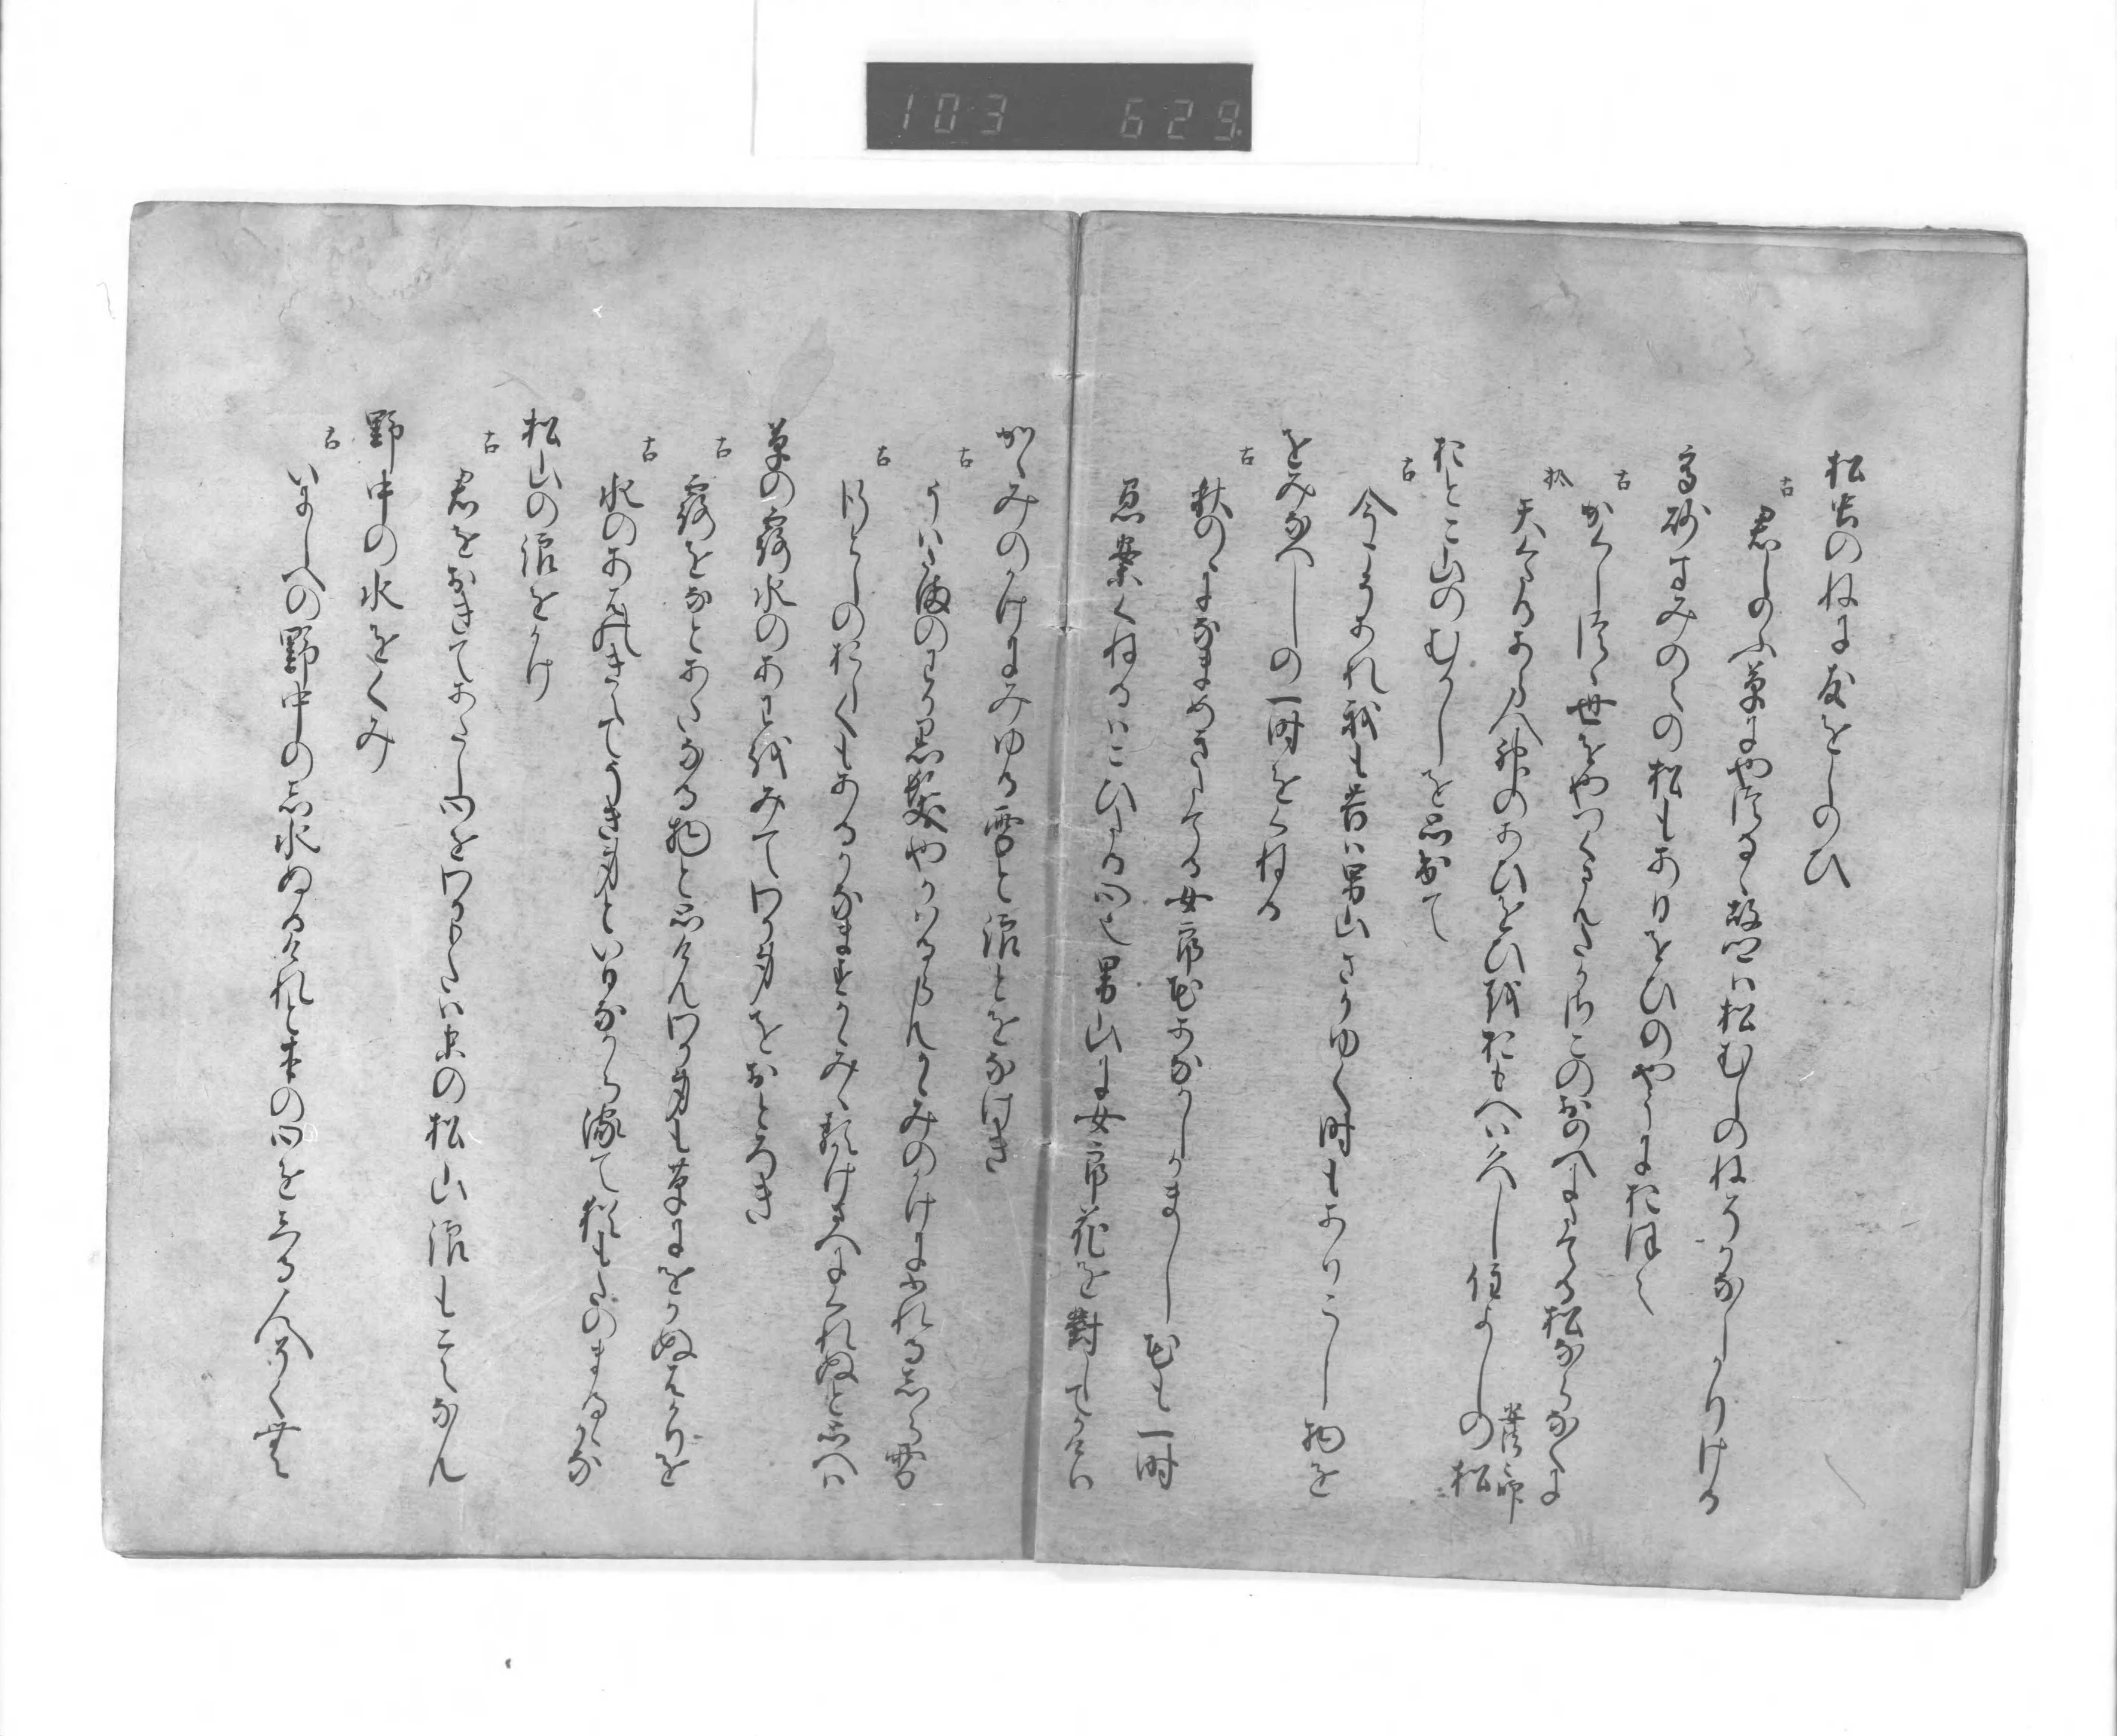 103 629
松虫のねに友をしのひ
古
君しのふ草にやつるゝ故郷は松むしのねそかなしかりける
高砂すみのえの松もあひをひのやうにおほえ
古
かくしつゝ世をやつくさんたかさこのおのへにたてる松ならなくに
拾
天くたるあら人神のあひをひを思へは久し住よしの松
安法々師
おとこ山のむかしを思出て
古
今こそあれ我も昔は男山さかゆく時もありこし物を
をみなへしの一時をくねる
古
秋のゝになまめきたてる女郎花あなかしかまし花も一時
愚案くねるはこひる心也男山に女郎花を對してかけり
かゝみのかけにみゆる雪と浪とをなけき
古
うは玉のわか黒髪やかはるらんかゝみのかけにふれるしら雪
古
行としのおしくもあるかなますかゝみゝる影さへにくれぬと思へは
草の露水のあはを見てわか身をおとろき
古
露をなとあたなる物と思けんわか身も草にをかぬはかりを
古
水のあわのきえてうき身といひなから流て猶もたのまるゝかな
松山の浪をかけ
古
君をおきてあたし心をわかもたは末の松山浪もこえなん
野中の水をくみ
古
いにしへの野中のし水ぬるけれと本の心をしる人そくむ